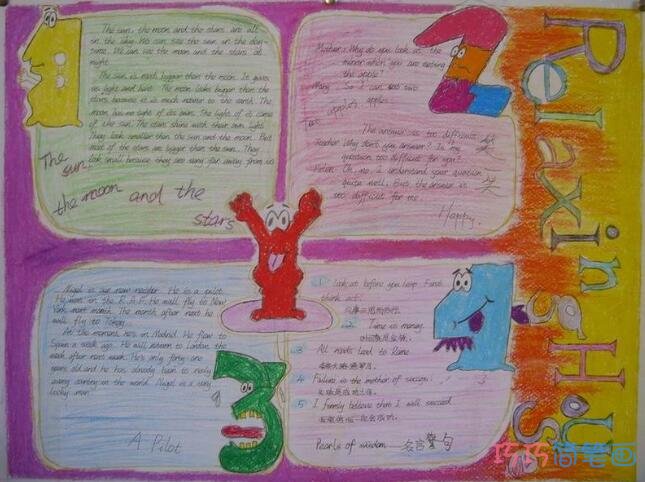 The sun, the moon and the stars are all
in the sky. We can see the sun in the day-
time. We can see the moon and the stars at
night.
The sun is much bigger than the moon. It gives
us light and heat. The moon looks bigger than the
stars because it is much nearer to the earth. The
moon has no light of its own. The light of it comes
of the sun. The stars shine with their own light.
They look smaller than the sun and the moon. But
most of the stars are bigger than the sun. They
look small because they are very far away from us
The sun,
the moon and the
stars
Mother: Why do you look at the
mirror when you are eating
the apple?
Mary: So I can see two
apples.
Two apples
The answer is too difficult
Teacher: Why don't you answer? Is my
question too difficult for you?
Helen: Oh, no. I understand your question
quite well, but the answer is
too difficult for me.
Happy
笑
Relaxing Hours
Nigel is our new neighbor. He is a pilot.
He was in the R.A.F. He will fly to New
York next month. The month after next he
will fly to Tokyo.
At the moment, he's in Madrid. He flew to
Spain a week ago. He will return to London the
week after next week. He's only forty-one
years old and he has already been to nearly
every country in the world. Nigel is a very
lucky man.
A Pilot
1 Look before you leap. First
think, act.
2 Time is money.
时间就是金钱。
3 All roads lead to Rome
条条大路通罗马。
4 Failure is the mother of success.
失败是成功之母。
5 I firmly believe that I will succeed
我坚信我一定会成功。
Pearls of wisdom 名言警句
巧巧简笔画